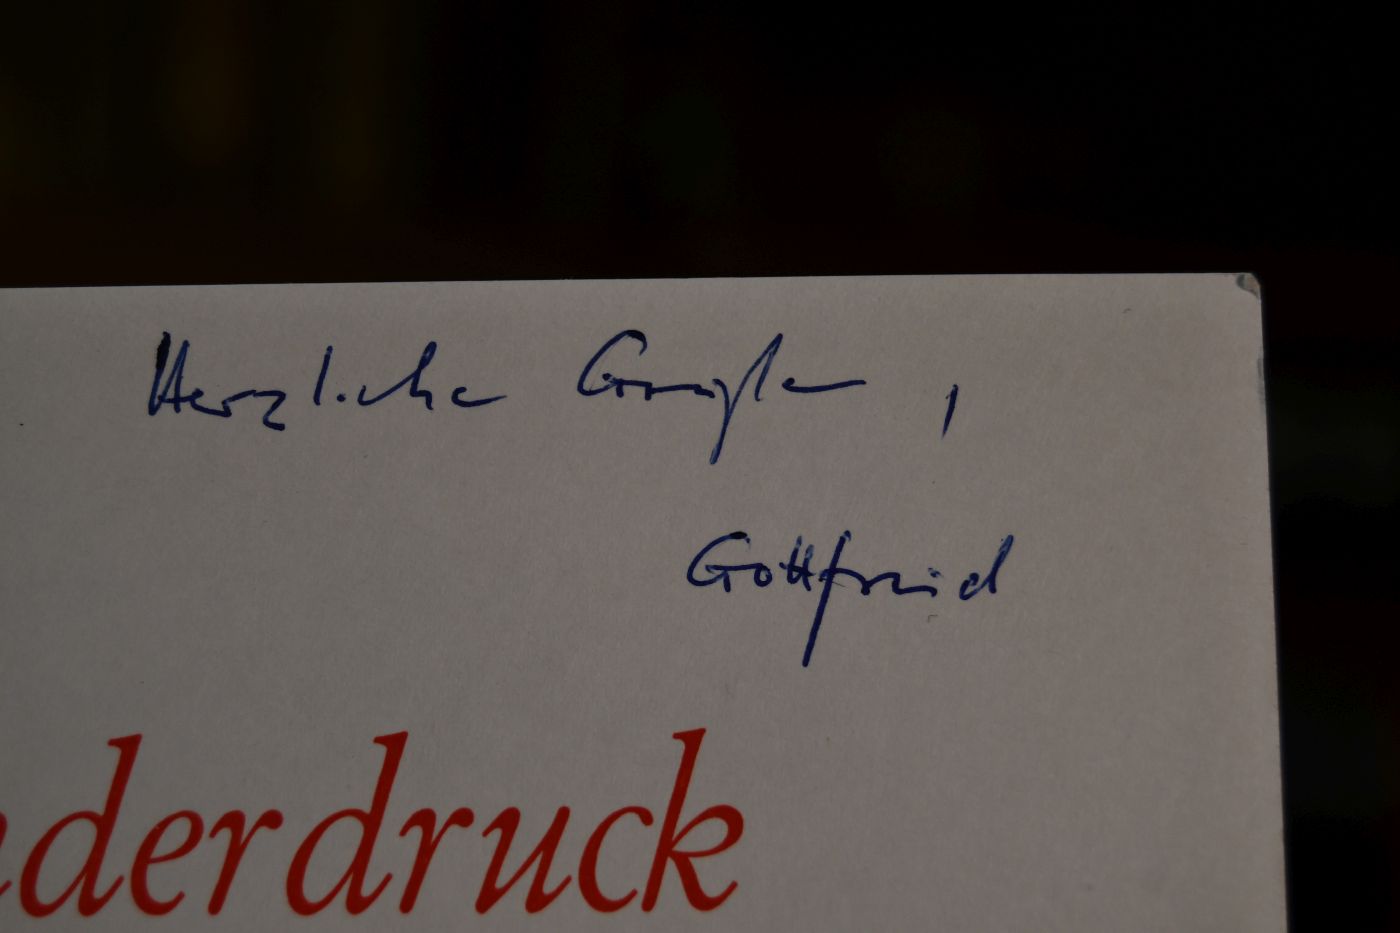 Herzliche Grüße,
Gottfried
nderdruck